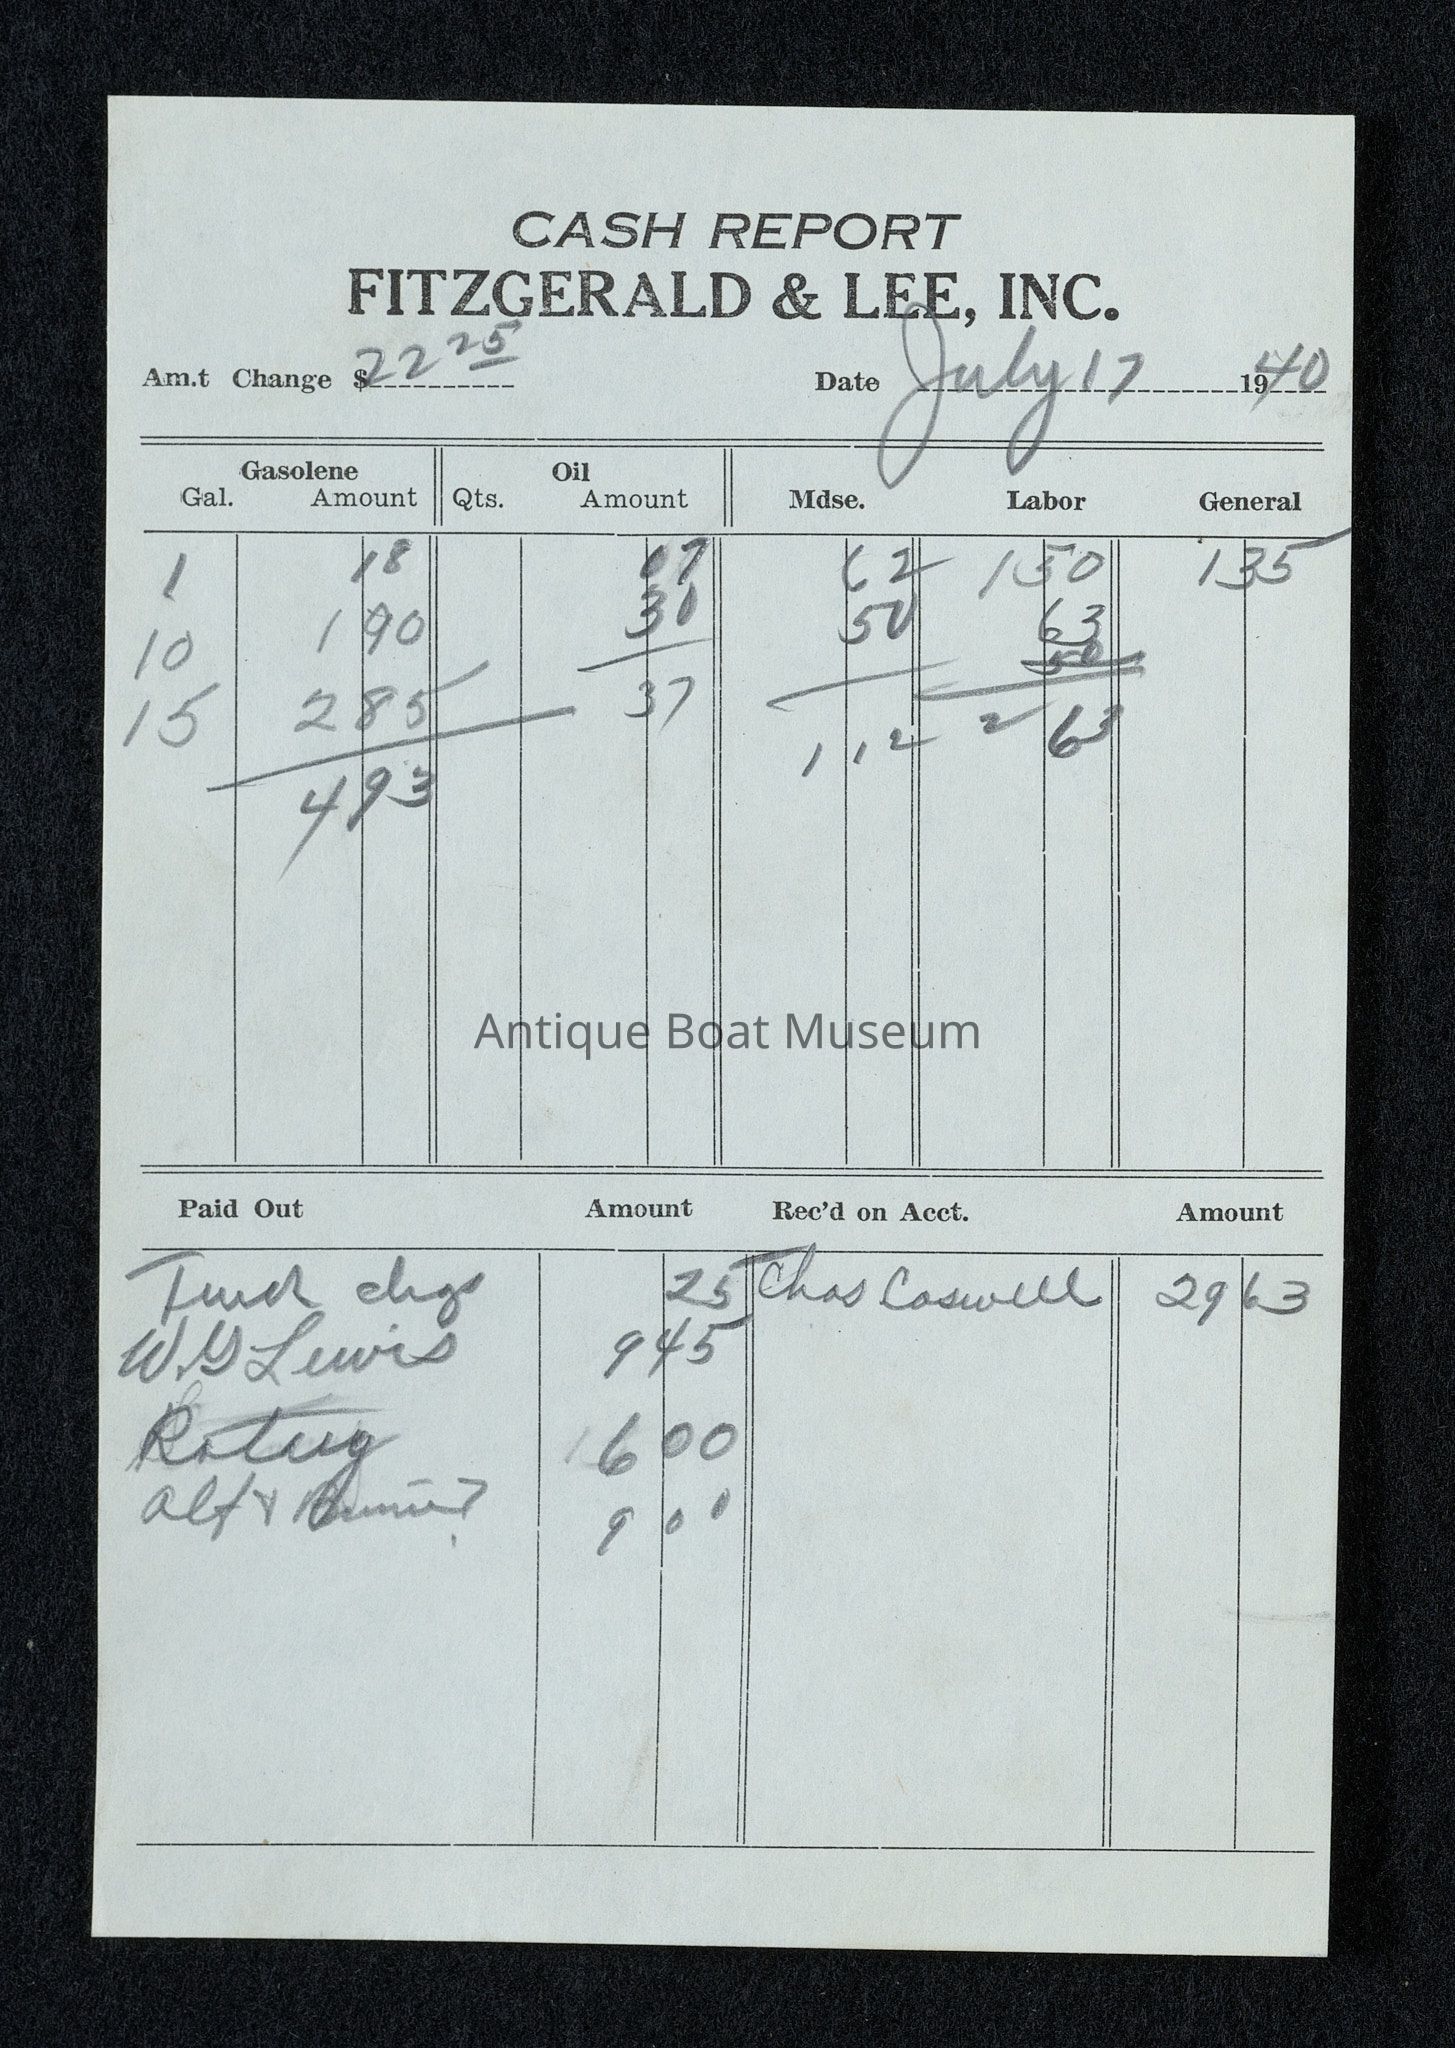 CASH REPORT
FITZGERALD & LEE, INC.
Am.t Change $ 22 25
Date July 17 1940
Gasolene Oil
Gal. Amount Qts. Amount Mdse. Labor General
1 18 07 62 1 50 1 35
10 1 90 30 50 63
15 2 85 50
37 1 12 2 63
4 93
Antique Boat Museum
Paid Out Amount Rec'd on Acct. Amount
Truck chgs 25 Chas Caswell 29 63
W.G Lewis 9 45
6 00
Alf & 9 00